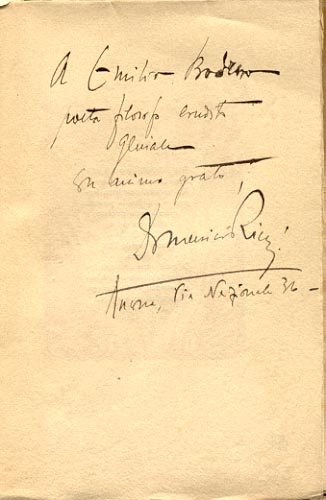 A Emilio Bodrero
poeta filosofo erudito
geniale
con animo grato,
Domenico Ricci
Ancona, Via Nazionale 36 –